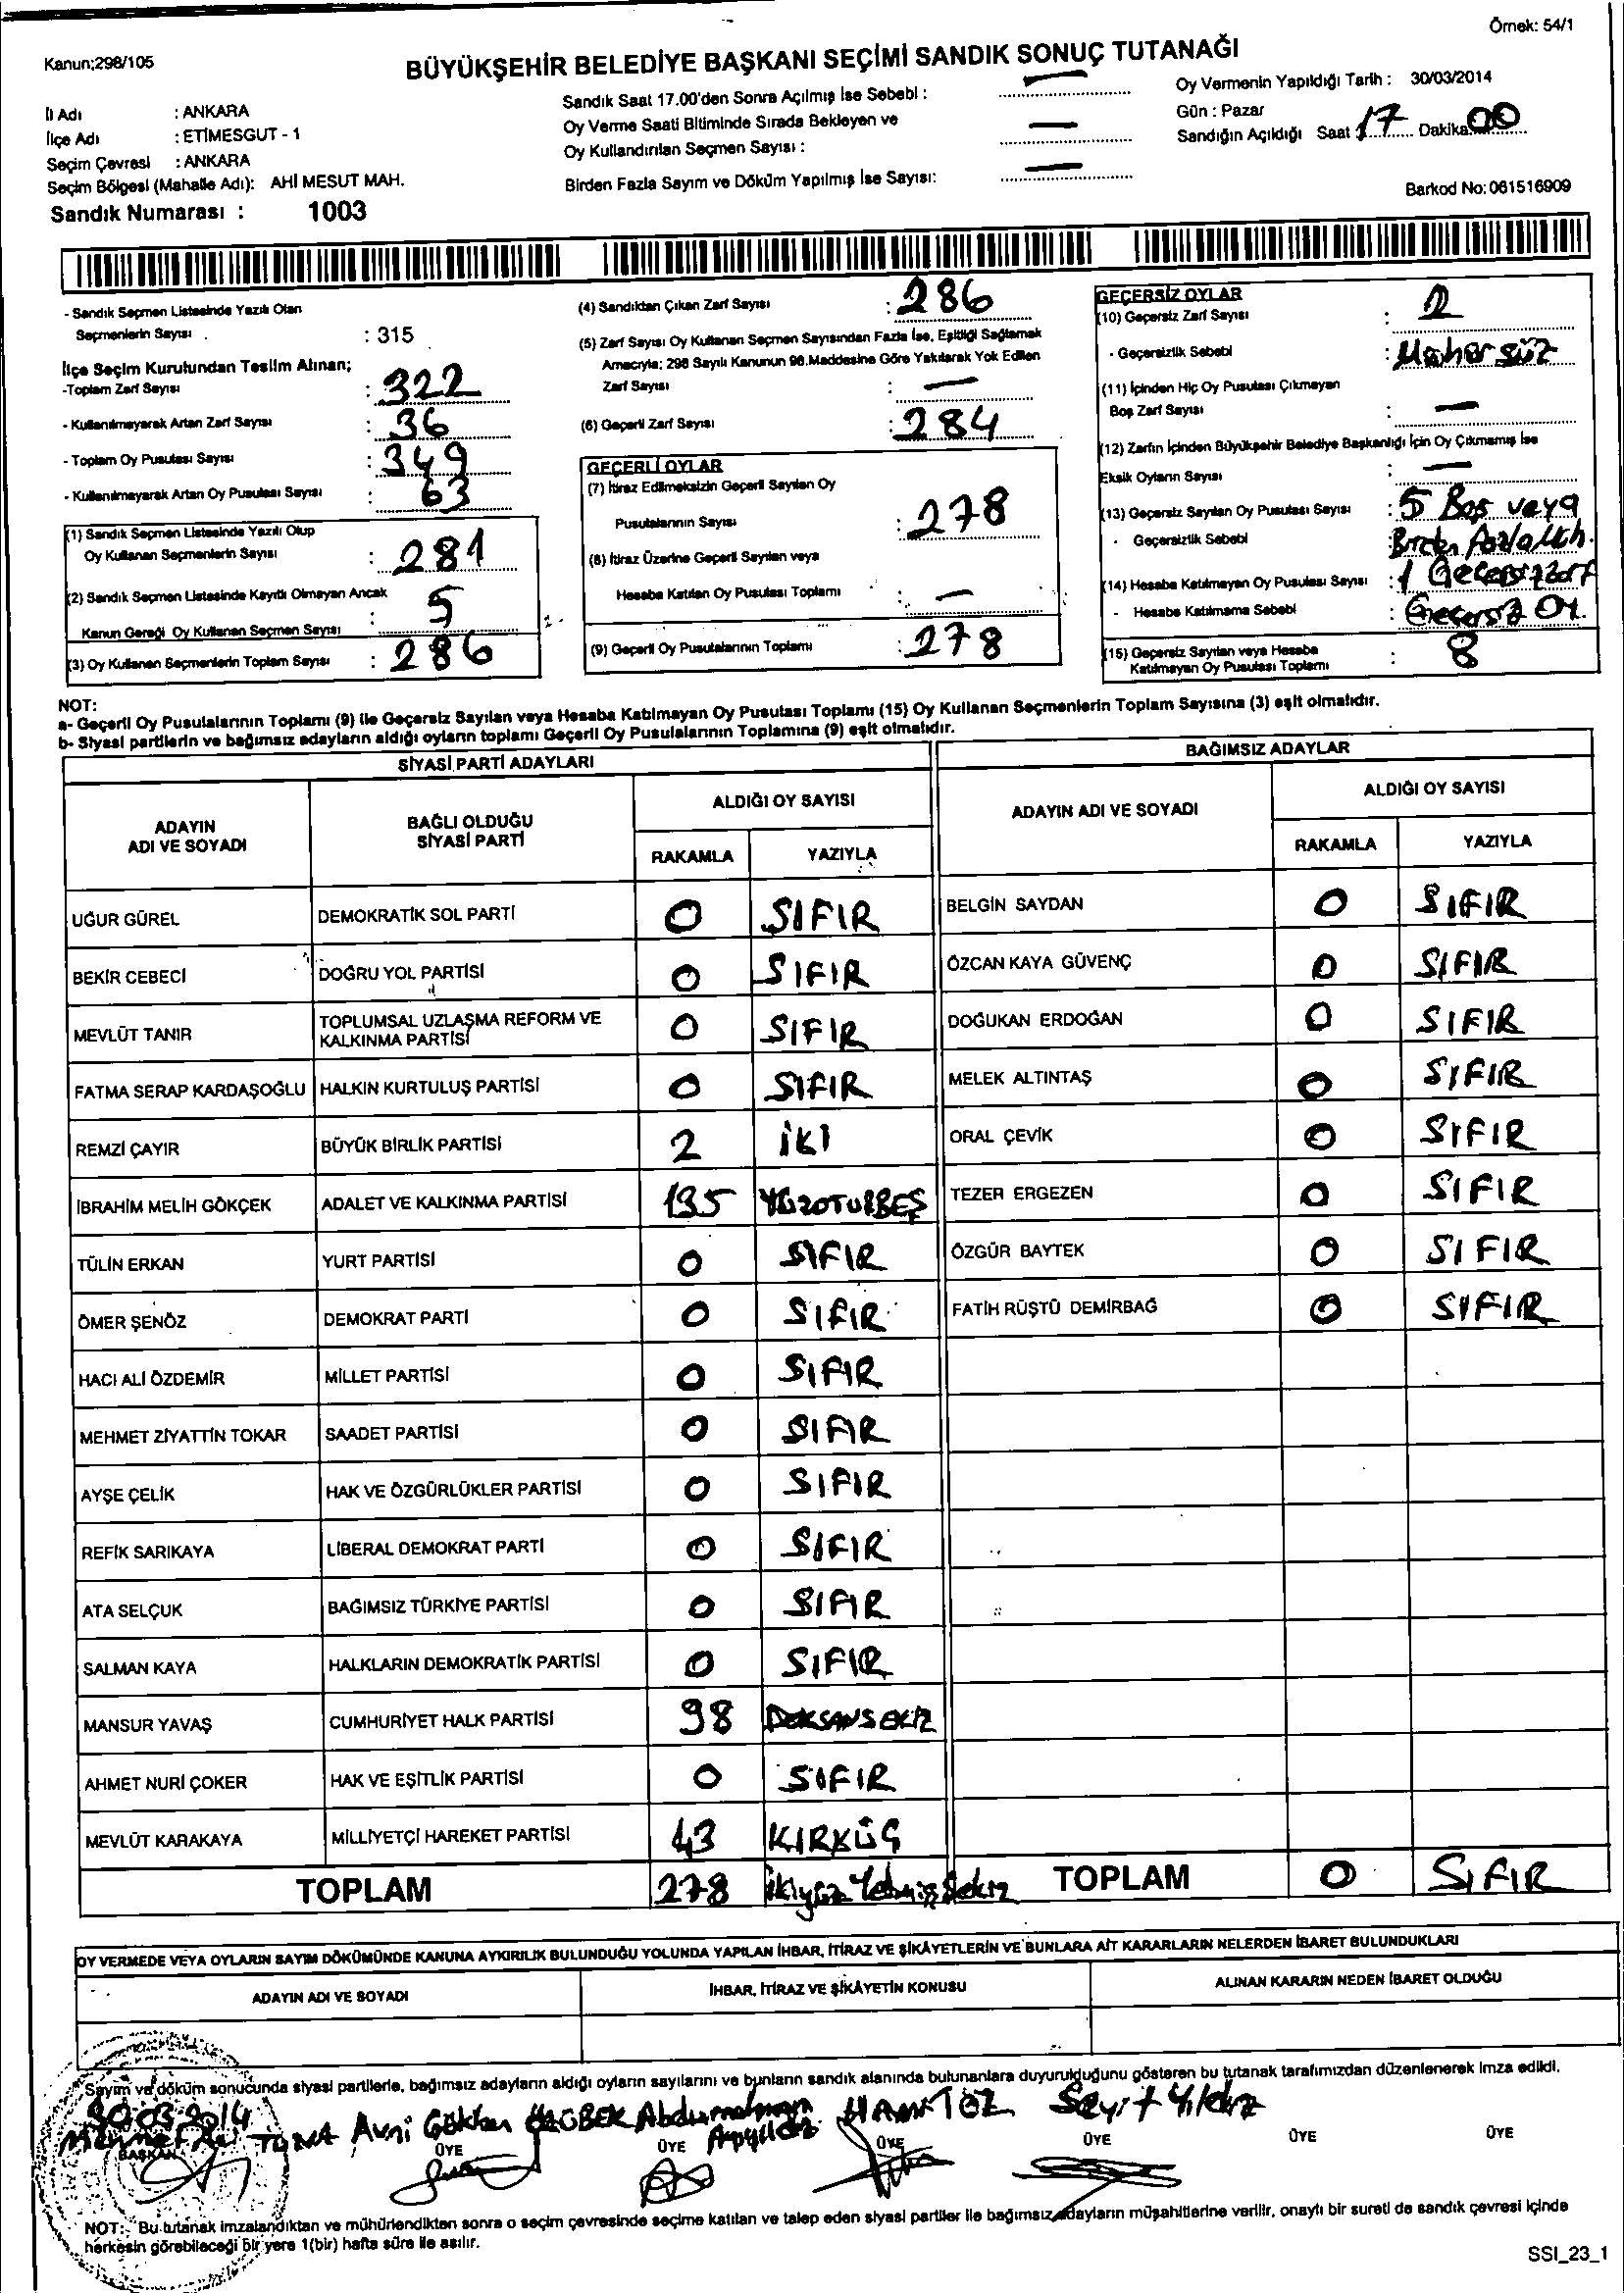 Örnek: 54/1
Kanun;298/105
BÜYÜKŞEHİR BELEDİYE BAŞKANI SEÇİMİ SANDIK SONUÇ TUTANAĞI
İl Adı : ANKARA
İlçe Adı : ETİMESGUT - 1
Seçim Çevresi : ANKARA
Seçim Bölgesi (Mahalle Adı): AHİ MESUT MAH.
Sandık Numarası : 1003
Sandık Saat 17.00'den Sonra Açılmış İse Sebebi : —
Oy Verme Saati Bitiminde Sırada Bekleyen ve
Oy Kullandırılan Seçmen Sayısı : —
Birden Fazla Sayım ve Döküm Yapılmış İse Sayısı: —
Oy Vermenin Yapıldığı Tarih : 30/03/2014
Gün : Pazar
Sandığın Açıldığı Saat : 17 Dakika: 00
Barkod No: 061516909
- Sandık Seçmen Listesinde Yazılı Olan
Seçmenlerin Sayısı : 315
İlçe Seçim Kurulundan Teslim Alınan;
-Toplam Zarf Sayısı : 322
- Kullanılmayarak Artan Zarf Sayısı : 36
- Toplam Oy Pusulası Sayısı : 349
- Kullanılmayarak Artan Oy Pusulası Sayısı : 63
(1) Sandık Seçmen Listesinde Yazılı Olup
Oy Kullanan Seçmenlerin Sayısı : 281
(2) Sandık Seçmen Listesinde Kayıtlı Olmayan Ancak
Kanun Gereği Oy Kullanan Seçmen Sayısı : 5
(3) Oy Kullanan Seçmenlerin Toplam Sayısı : 286
(4) Sandıktan Çıkan Zarf Sayısı : 286
(5) Zarf Sayısı Oy Kullanan Seçmen Sayısından Fazla İse, Eşitliği Sağlamak
Amacıyla; 298 Sayılı Kanunun 98.Maddesine Göre Yakılarak Yok Edilen
Zarf Sayısı : —
(6) Geçerli Zarf Sayısı : 284
GEÇERLİ OYLAR
(7) İtiraz Edilmeksizin Geçerli Sayılan Oy
Pusulalarının Sayısı : 278
(8) İtiraz Üzerine Geçerli Sayılan veya
Hesaba Katılan Oy Pusulası Toplamı : —
(9) Geçerli Oy Pusulalarının Toplamı : 278
GEÇERSİZ OYLAR
(10) Geçersiz Zarf Sayısı : 2
- Geçersizlik Sebebi : Mühürsüz
(11) İçinden Hiç Oy Pusulası Çıkmayan
Boş Zarf Sayısı : —
(12) Zarfın İçinden Büyükşehir Belediye Başkanlığı İçin Oy Çıkmamış İse
Eksik Oyların Sayısı : —
(13) Geçersiz Sayılan Oy Pusulası Sayısı : 5 Boş veya
- Geçersizlik Sebebi
(14) Hesaba Katılmayan Oy Pusulası Sayısı : 1
- Hesaba Katılmama Sebebi : Geçersiz Oy.
(15) Geçersiz Sayılan veya Hesaba
Katılmayan Oy Pusulası Toplamı : 8
NOT:
a- Geçerli Oy Pusulalarının Toplamı (9) ile Geçersiz Sayılan veya Hesaba Katılmayan Oy Pusulası Toplamı (15) Oy Kullanan Seçmenlerin Toplam Sayısına (3) eşit olmalıdır.
b- Siyasi partilerin ve bağımsız adayların aldığı oyların toplamı Geçerli Oy Pusulalarının Toplamına (9) eşit olmalıdır.
SİYASİ PARTİ ADAYLARI
ADAYIN ADI VE SOYADI
BAĞLI OLDUĞU SİYASİ PARTİ
ALDIĞI OY SAYISI
RAKAMLA YAZIYLA
UĞUR GÜREL DEMOKRATİK SOL PARTİ 0 SIFIR
BEKİR CEBECİ DOĞRU YOL PARTİSİ 0 SIFIR
MEVLÜT TANIR TOPLUMSAL UZLAŞMA REFORM VE KALKINMA PARTİSİ 0 SIFIR
FATMA SERAP KARDAŞOĞLU HALKIN KURTULUŞ PARTİSİ 0 SIFIR
REMZİ ÇAYIR BÜYÜK BİRLİK PARTİSİ 2 İKİ
İBRAHİM MELİH GÖKÇEK ADALET VE KALKINMA PARTİSİ 135 YÜZOTUZBEŞ
TÜLİN ERKAN YURT PARTİSİ 0 SIFIR
ÖMER ŞENÖZ DEMOKRAT PARTİ 0 SIFIR
HACI ALİ ÖZDEMİR MİLLET PARTİSİ 0 SIFIR
MEHMET ZİYATTİN TOKAR SAADET PARTİSİ 0 SIFIR
AYŞE ÇELİK HAK VE ÖZGÜRLÜKLER PARTİSİ 0 SIFIR
REFİK SARIKAYA LİBERAL DEMOKRAT PARTİ 0 SIFIR
ATA SELÇUK BAĞIMSIZ TÜRKİYE PARTİSİ 0 SIFIR
SALMAN KAYA HALKLARIN DEMOKRATİK PARTİSİ 0 SIFIR
MANSUR YAVAŞ CUMHURİYET HALK PARTİSİ 98 DOKSANSEKİZ
AHMET NURİ ÇOKER HAK VE EŞİTLİK PARTİSİ 0 SIFIR
MEVLÜT KARAKAYA MİLLİYETÇİ HAREKET PARTİSİ 43 KIRKÜÇ
TOPLAM 278 İkiyüz Yetmiş Sekiz
BAĞIMSIZ ADAYLAR
ADAYIN ADI VE SOYADI
ALDIĞI OY SAYISI
RAKAMLA YAZIYLA
BELGİN SAYDAN 0 SIFIR
ÖZCAN KAYA GÜVENÇ 0 SIFIR
DOĞUKAN ERDOĞAN 0 SIFIR
MELEK ALTINTAŞ 0 SIFIR
ORAL ÇEVİK 0 SIFIR
TEZER ERGEZEN 0 SIFIR
ÖZGÜR BAYTEK 0 SIFIR
FATİH RÜŞTÜ DEMİRBAĞ 0 SIFIR
TOPLAM 0 SIFIR
OY VERMEDE VEYA OYLARIN SAYIM DÖKÜMÜNDE KANUNA AYKIRILIK BULUNDUĞU YOLUNDA YAPILAN İHBAR, İTİRAZ VE ŞİKÂYETLERİN VE BUNLARA AİT KARARLARIN NELERDEN İBARET BULUNDUKLARI
ADAYIN ADI VE SOYADI İHBAR, İTİRAZ VE ŞİKÂYETİN KONUSU ALINAN KARARIN NEDEN İBARET OLDUĞU
Sayım ve döküm sonucunda siyasi partilerle, bağımsız adayların aldığı oyların sayılarını ve bunların sandık alanında bulunanlara duyurulduğunu gösteren bu tutanak tarafımızdan düzenlenerek imza edildi.
30.03.2014
Mehmet Ali TUNA Avni Gökhan ÖZBEK Abdurrahman HAMTOZ Seyit Yıldız
BAŞKAN ÜYE ÜYE ÜYE ÜYE ÜYE ÜYE
NOT:- Bu tutanak imzalandıktan ve mühürlendikten sonra o seçim çevresinde seçime katılan ve talep eden siyasi partiler ile bağımsız adayların müşahitlerine verilir, onaylı bir sureti de sandık çevresi içinde
herkesin görebileceği bir yere 1(bir) hafta süre ile asılır.
SSI_23_1